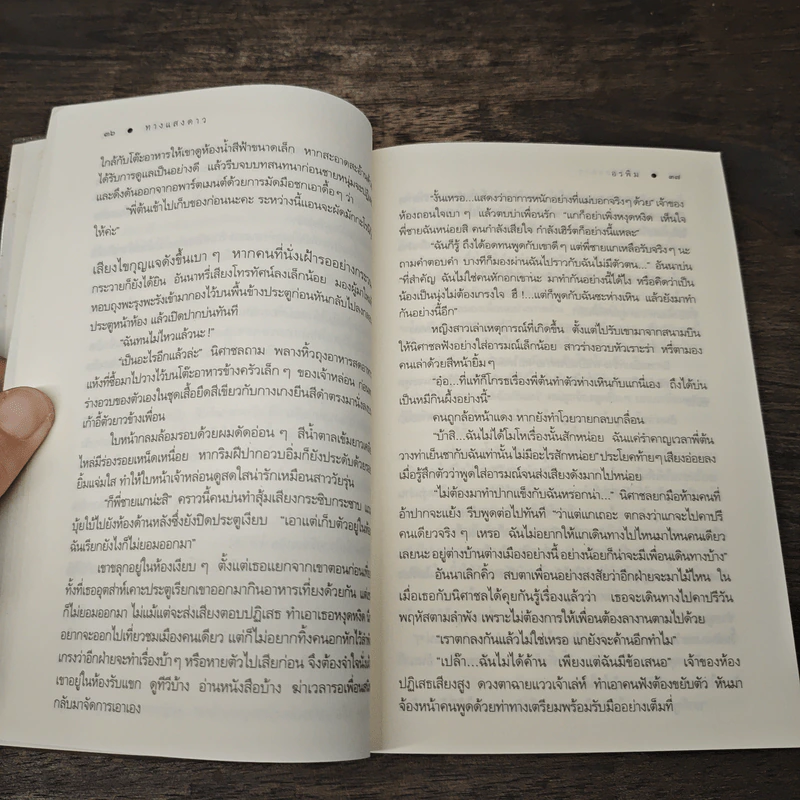 ๓๖ ● ทางแสงดาว
ใกล้กับโต๊ะอาหารให้เขาดูห้องน้ำสีฟ้าขนาดเล็ก หากสะอาดสะอ้าน
ได้รับการดูแลเป็นอย่างดี แล้วรีบจบบทสนทนาก่อนชายหนุ่มจะ
และดึงดันออกจากอพาร์ตเมนต์ด้วยการมัดมือชกเอาดื้อๆ ว่า
“พี่ต้นเข้าไปเก็บของก่อนนะคะ ระหว่างนี้แอนจะผัดมักกะโรนี
ให้ค่ะ”
เสียงไขกุญแจดังขึ้นเบาๆ หากคนที่นั่งเฝ้ารออย่างกระวน
กระวายก็ยังได้ยิน อันนาหรี่เสียงโทรทัศน์ลงเล็กน้อย มองผู้มาใหม่
หอบถุงพะรุงพะรังเข้ามากองไว้บนพื้นข้างประตูก่อนหันกลับไป
ประตูหน้าห้อง แล้วเปิดปากบ่นทันที
“ฉันทนไม่ไหวแล้วนะ!”
“เป็นอะไรอีกแล้วล่ะ” นิศาชลถาม พลางหิ้วถุงอาหารสด
แห้งที่ซื้อมาไปวางไว้บนโต๊ะอาหารข้างครัวเล็กๆ ของเจ้าหล่อน ก่อน
ร่างอวบของตัวเองในชุดเสื้อยืดสีเขียวกับกางเกงยีนสีดำตรงมานั่งลง
เก้าอี้ตัวยาวข้างเพื่อน
ใบหน้ากลมล้อมรอบด้วยผมดัดอ่อนๆ สีน้ำตาลเข้มยาว
ไหล่มีร่องรอยเหน็ดเหนื่อย หากริมฝีปากอวบอิ่มก็ยังประดับด้วย
ยิ้มแจ่มใส ทำให้ใบหน้าเจ้าหล่อนดูสดใสน่ารักเหมือนสาววัยรุ่น
“ก็พี่ชายแกน่ะสิ” คราวนี้คนบ่นทำสุ้มเสียงกระซิบกระซาบ
บุ้ยใบ้ไปยังห้องด้านหลังซึ่งยังปิดประตูเงียบ “เอาแต่เก็บตัวอยู่ใน
ฉันเรียกยังไงก็ไม่ยอมออกมา”
เขาขลุกอยู่ในห้องเงียบๆ ตั้งแต่เธอแยกจากเขาตอนก่อนเที่ยง
ทั้งที่เธออุตส่าห์เคาะประตูเรียกเขาออกมากินอาหารเที่ยงด้วยกัน
ก็ไม่ยอมออกมา ไม่แม้แต่จะส่งเสียงตอบปฏิเสธ ทำเอาเธอหงุดหงิด
อยากจะออกไปเที่ยวชมเมืองคนเดียว แต่ก็ไม่อยากทิ้งคนอกหักไว้
เกรงว่าอีกฝ่ายจะทำเรื่องบ้าๆ หรือหายตัวไปเสียก่อน จึงต้องจำใจ
เขาอยู่ในห้องรับแขก ดูทีวีบ้าง อ่านหนังสือบ้าง ฆ่าเวลารอเพื่อน
กลับมาจัดการเอาเอง
อรพิม ● ๓๗
“งั้นเหรอ...แสดงว่าอาการหนักอย่างที่แม่บอกจริงๆ ด้วย” เจ้าของ
ห้องถอนใจเบาๆ แล้วตบบ่าเพื่อนรัก “แกก็อย่าเพิ่งหงุดหงิด เห็นใจ
พี่ชายฉันหน่อยสิ คนกำลังเสียใจ กำลังเฮิร์ตก็อย่างนี้แหละ”
“ฉันก็รู้ ถึงได้อดทนพูดกับเขาดีๆ แต่พี่ชายแกเหลือรับจริงๆ นะ
ถามคำตอบคำ บางทีก็มองผ่านฉันไปราวกับฉันไม่มีตัวตน...” อันนาบ่น
“ที่สำคัญ ฉันไม่ใช่คนหักอกเขานะ มาทำกันอย่างนี้ได้ไง หรือคิดว่าเป็น
น้องเป็นนุ่งไม่ต้องเกรงใจ ฮึ!...แต่ก็พูดกับฉันซะห่างเหิน แล้วยังมาทำ
กันอย่างนี้อีก”
หญิงสาวเล่าเหตุการณ์ที่เกิดขึ้น ตั้งแต่ไปรับเขามาจากสนามบิน
ให้นิศาชลฟังอย่างใส่อารมณ์เล็กน้อย สาวร่างอวบหัวเราะร่า หรี่ตามอง
คนเล่าด้วยสีหน้ายิ้มๆ
“อ๋อ...ที่แท้ก็โกรธเรื่องพี่ต้นทำตัวห่างเหินกับแกนี่เอง ถึงได้บ่น
เป็นหมีกินผึ้งอย่างนี้”
คนถูกล้อหน้าแดง หากยังทำโวยวายกลบเกลื่อน
“บ้าสิ...ฉันไม่ได้โมโหเรื่องนั้นสักหน่อย ฉันแค่รำคาญเวลาพี่ต้น
วางท่าเย็นชากับฉันเท่านั้น ไม่มีอะไรสักหน่อย” ประโยคท้ายๆ เสียงอ่อยลง
เมื่อรู้สึกตัวว่าพูดใส่อารมณ์จนส่งเสียงดังมากไปหน่อย
“ไม่ต้องมาทำปากแข็งกับฉันหรอกน่า...” นิศาชลยกมือห้ามคนที่
อ้าปากจะแย้ง รีบพูดต่อไปทันที “ว่าแต่แกเถอะ ตกลงว่าแกจะไปคาปรี
คนเดียวจริงๆ เหรอ ฉันไม่อยากให้แกเดินทางไปไหนมาไหนคนเดียว
เลยนะ อยู่ต่างบ้านต่างเมืองอย่างนี้ อย่างน้อยก็น่าจะมีเพื่อนเดินทางบ้าง”
อันนาเลิกคิ้ว สบตาเพื่อนอย่างสงสัยว่าอีกฝ่ายจะมาไม้ไหน ใน
เมื่อเธอกับนิศาชลได้คุยกันรู้เรื่องแล้วว่า เธอจะเดินทางไปคาปรีวัน
พฤหัสตามลำพัง เพราะไม่ต้องการให้เพื่อนต้องลางานตามไปด้วย
“เราตกลงกันแล้วไม่ใช่เหรอ แกยังจะค้านอีกทำไม”
“เปล๊า...ฉันไม่ได้ค้าน เพียงแต่ฉันมีข้อเสนอ” เจ้าของห้อง
ปฏิเสธเสียงสูง ดวงตาฉายแววเจ้าเล่ห์ ทำเอาคนฟังต้องขยับตัว หันมา
จ้องหน้าคนพูดด้วยท่าทางเตรียมพร้อมรับมืออย่างเต็มที่